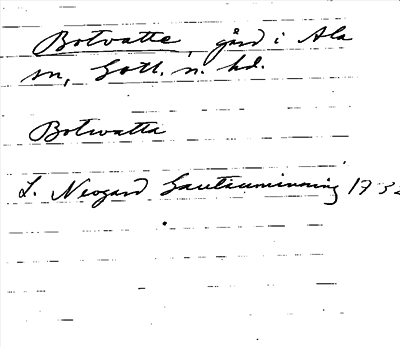 Botvatte, gård i Ala
sn, Gotl. n. hd.
Botwatta
J. Neogard Gautauminning 1732